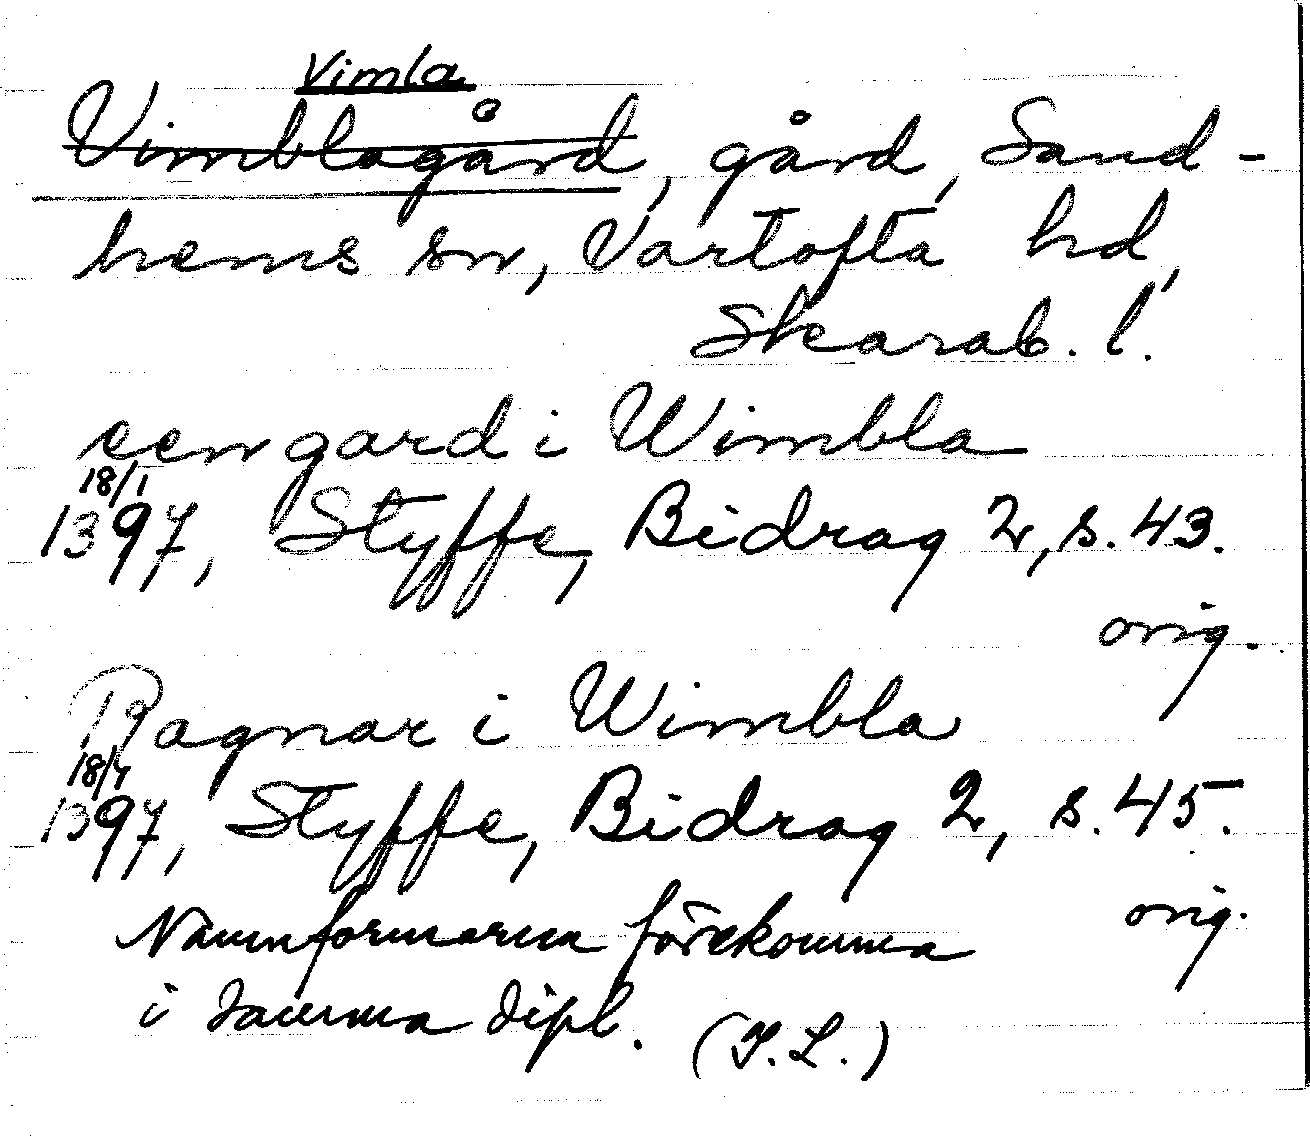 Vimla
Vimblagård, gård, Sand-
hems sn, Vartofta hd,
Skarab. l.
een gard i Wimbla
18/1
1397, Styffe, Bidrag 2, s. 43.
orig.
Ragnar i Wimbla
18/4
1397, Styffe, Bidrag 2, s. 45.
orig.
Namnformerna förekomma
i samma dipl. (I. L.)